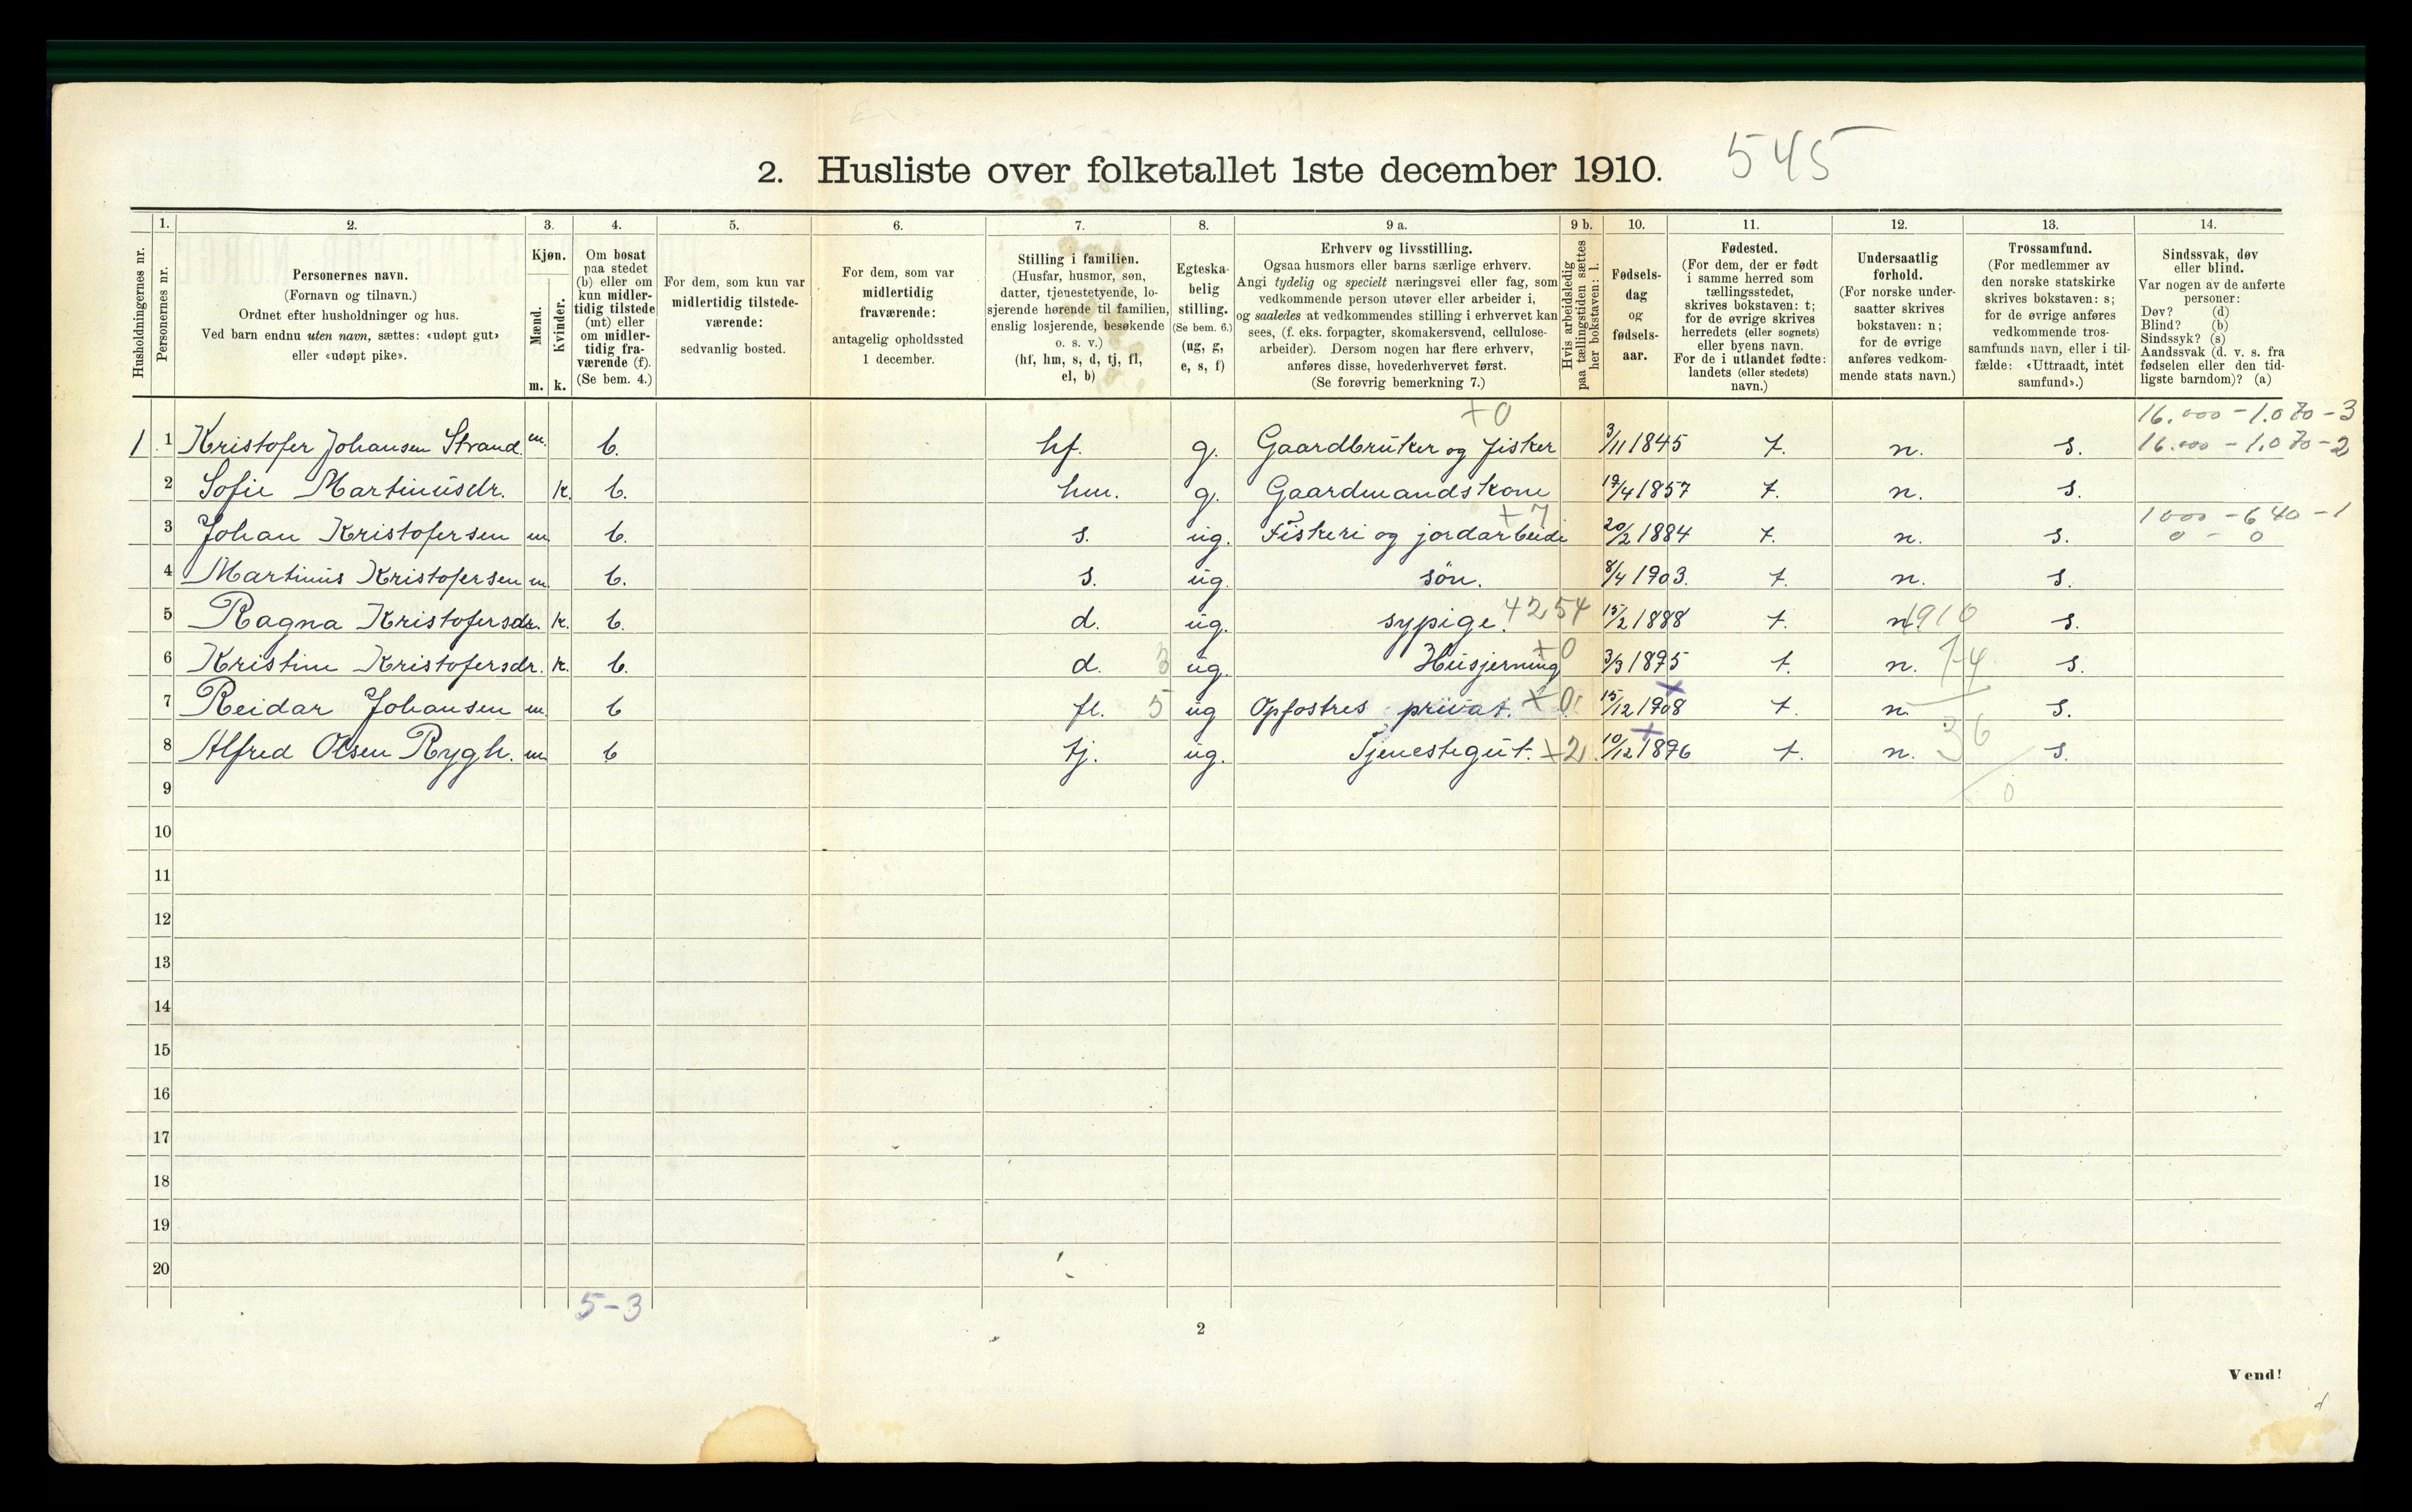 2. Husliste over folketallet 1ste december 1910. 545
Husholdningernes nr.
1. Personernes nr.
2.
Personernes navn.
(Fornavn og tilnavn.)
Ordnet efter husholdninger og hus.
Ved barn endnu uten navn, sættes: «udøpt gut»
eller «udøpt pike».
3.
Kjøn.
Mænd. Kvinder.
m. k.
4.
Om bosat
paa stedet
(b) eller om
kun midler-
tidig tilstede
(mt) eller
om midler-
tidig fra-
værende (f).
(Se bem. 4.)
5.
For dem, som kun var
midlertidig tilstede-
værende:
sedvanlig bosted.
6.
For dem, som var
midlertidig
fraværende:
antagelig opholdssted
1 december.
7.
Stilling i familien.
(Husfar, husmor, søn,
datter, tjenestetyende, lo-
sjerende hørende til familien,
enslig losjerende, besøkende
o. s. v.)
(hf, hm, s, d, tj, fl,
el, b)
8.
Egteska-
belig
stilling.
(Se bem. 6.)
(ug, g,
e, s, f)
9 a.
Erhverv og livsstilling.
Ogsaa husmors eller barns særlige erhverv.
Angi tydelig og specielt næringsvei eller fag, som
vedkommende person utøver eller arbeider i,
og saaledes at vedkommendes stilling i erhvervet kan
sees, (f. eks. forpagter, skomakersvend, cellulose-
arbeider). Dersom nogen har flere erhverv,
anføres disse, hovederhvervet først.
(Se forøvrig bemerkning 7.)
9 b.
Hvis arbeidsledig
paa tællingstiden sættes
her bokstaven: l.
10.
Fødsels-
dag
og
fødsels-
aar.
11.
Fødested.
(For dem, der er født
i samme herred som
tællingsstedet,
skrives bokstaven: t;
for de øvrige skrives
herredets (eller sognets)
eller byens navn.
For de i utlandet fødte:
landets (eller stedets)
navn.)
12.
Undersaatlig
forhold.
(For norske under-
saatter skrives
bokstaven: n;
for de øvrige
anføres vedkom-
mende stats navn.)
13.
Trossamfund.
(For medlemmer av
den norske statskirke
skrives bokstaven: s;
for de øvrige anføres
vedkommende tros-
samfunds navn, eller i til-
fælde: «Uttraadt, intet
samfund».)
14.
Sindssvak, døv
eller blind.
Var nogen av de anførte
personer:
Døv? (d)
Blind? (b)
Sindssyk? (s)
Aandssvak (d. v. s. fra
fødselen eller den tid-
ligste barndom)? (a)
+0 16.000 - 1.070 - 3
1 1 Kristofer Johansen Strand m. b. hf. g. Gaardbruker og fisker 3/11 1845 t. n. s. 16.000 - 1.070 - 2
2 Sofie Martinusdr. k. b. hm. g. Gaardmandskone 17/4 1857 t. n. s.
+7 1000 - 640 - 1
3 Johan Kristofersen m. b. s. ug. Fiskeri og jordarbeide 20/2 1884 t. n. s. 0 - 0
4 Martinus Kristofersen m. b. s. ug. søn. 8/4 1903. t. n. s.
5 Ragna Kristofersdr. k. b. d. ug. sypige. 4254 15/2 1888 t. n. 1910 s.
6 Kristine Kristofersdr. k. b. d. 3 ug. Husjerning +0 3/3 1895 t. n. 74 s.
7 Reidar Johansen m. b fl. 5 ug Opfostres privat. +0 15/12 1908 t. n. s.
8 Alfred Olsen Rygh. m. b tj. ug. Tjenestegut. +2 10/12 1896 t. n. 36 s.
9 0
10
11
12
13
14
15
16
17
18
19
20
5-3
2
Vend!